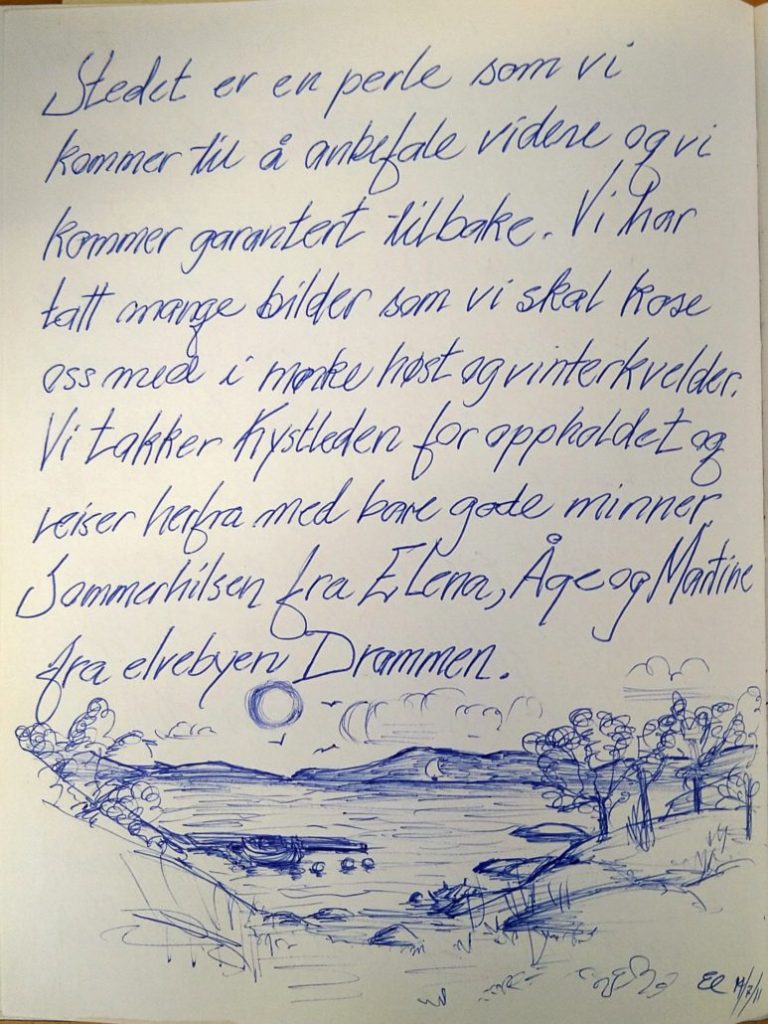 Stedet er en perle som vi
kommer til å anbefale videre og vi
kommer garantert tilbake. Vi har
tatt mange bilder som vi skal kose
oss med i mørke høst og vinterkvelder.
Vi takker Kystleden for oppholdet og
reiser herfra med bare gode minner.
Sommerhilsen fra Elena, Åge og Martine
fra elvebyen Drammen.